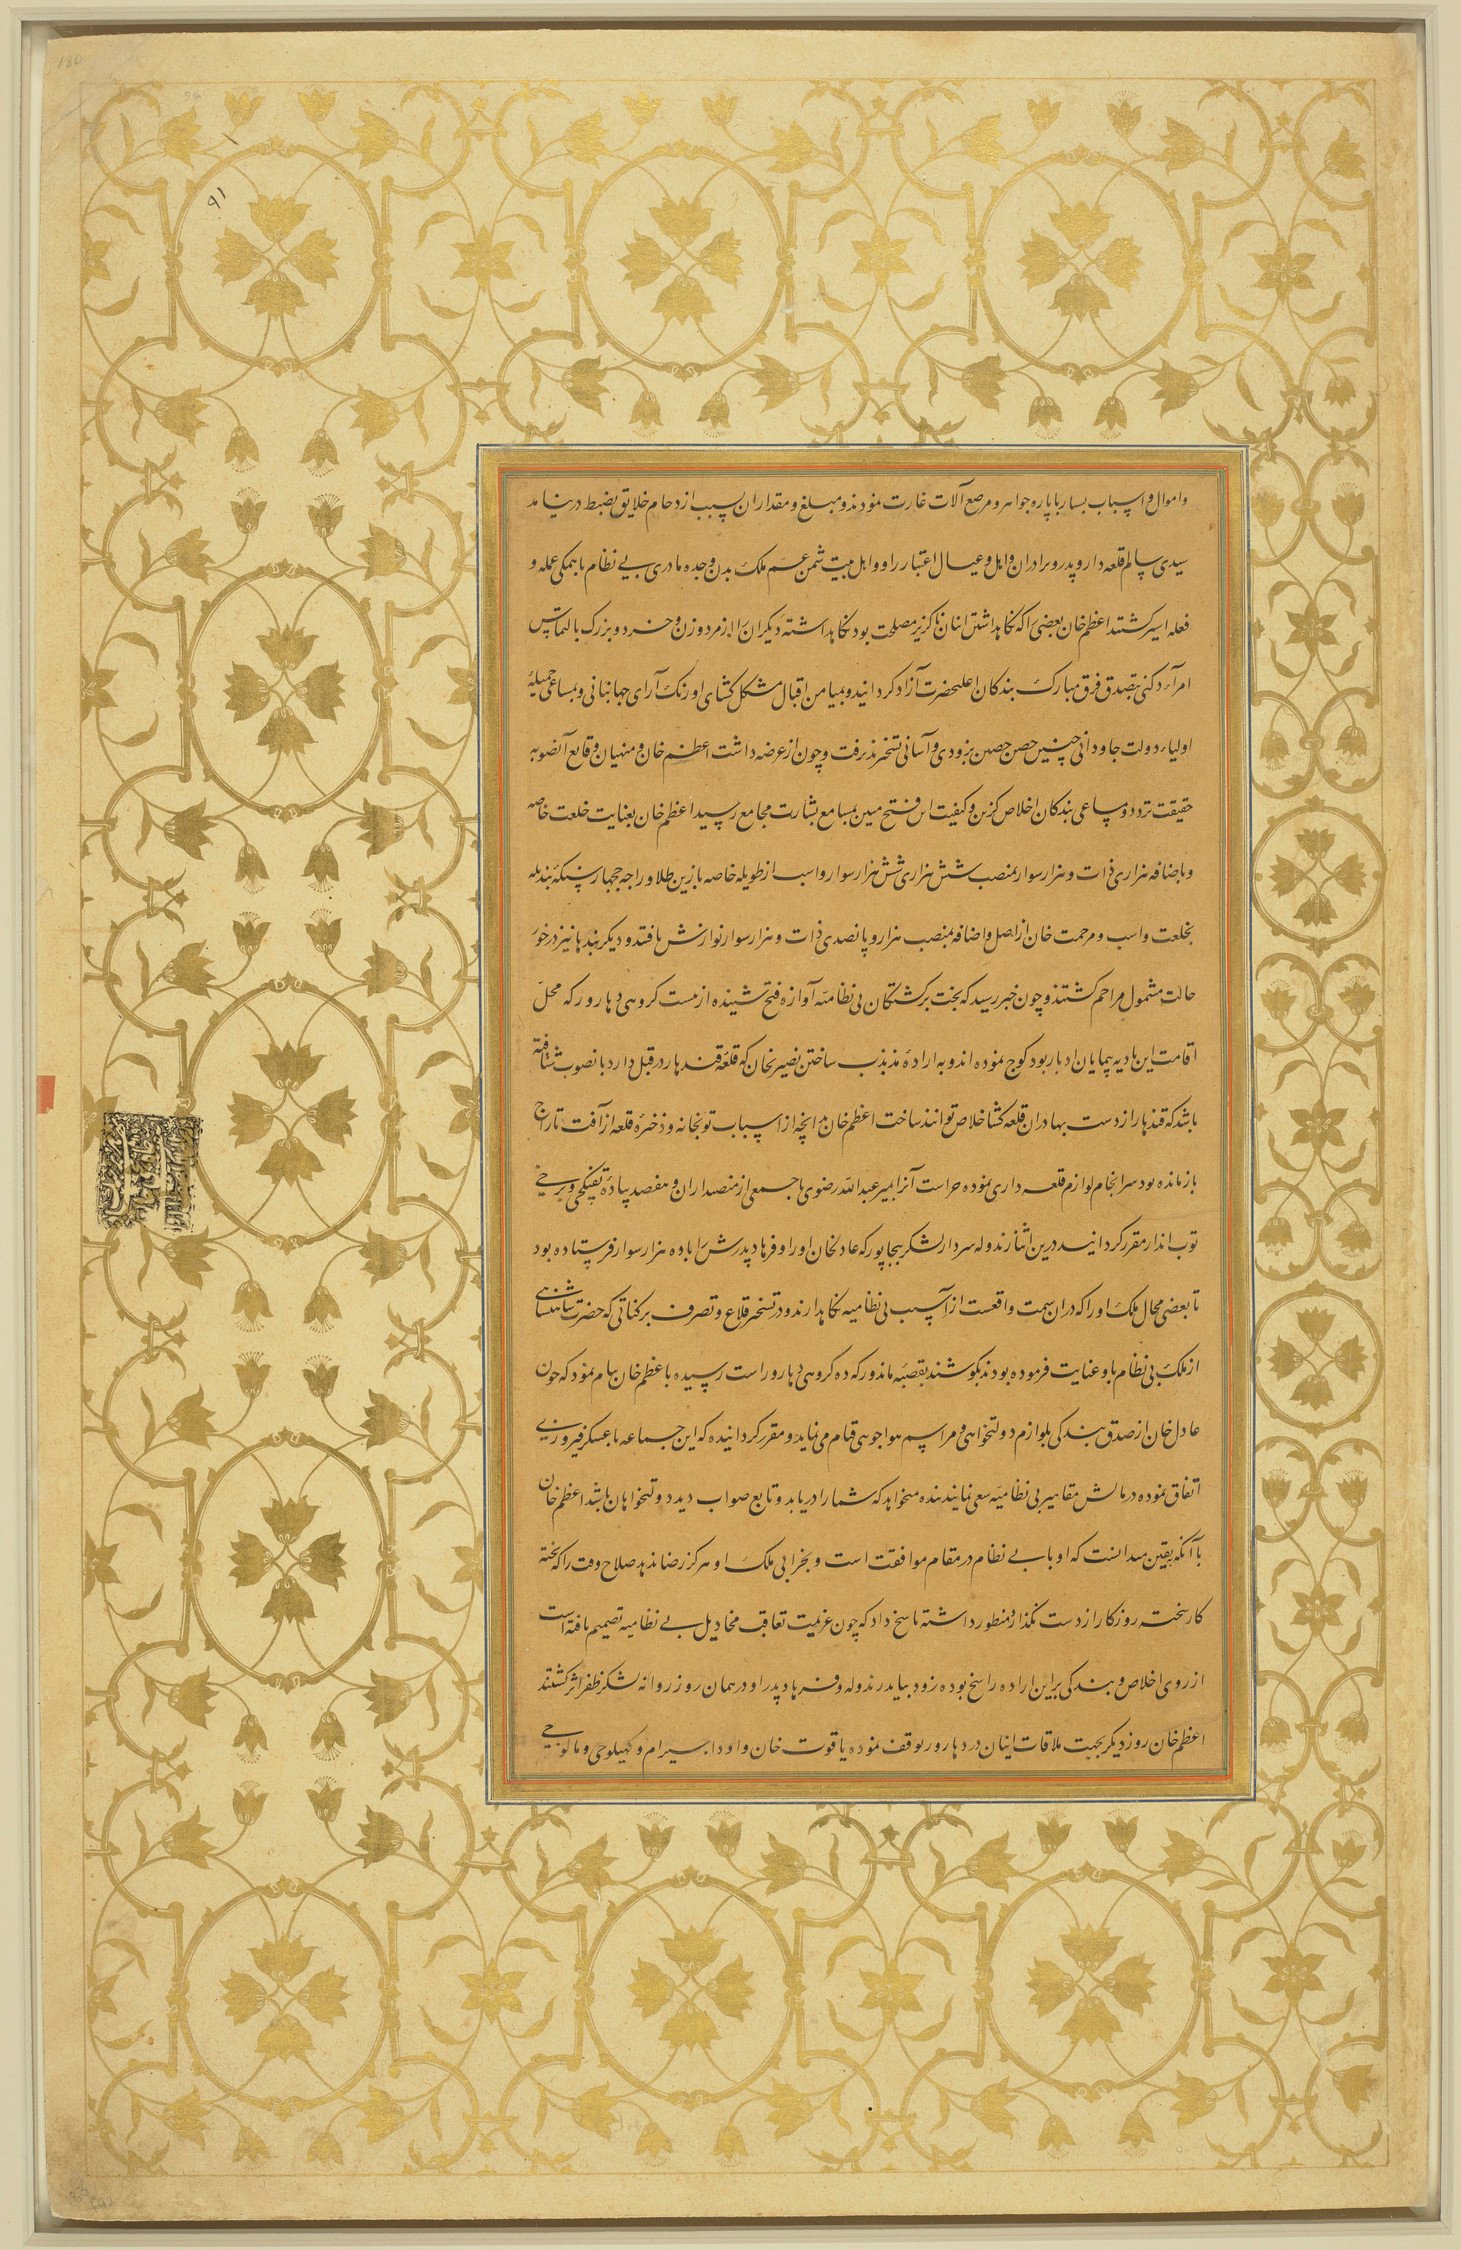 180
۹۱
و اموال و اسباب بسیار با پاره جواهر و مرصع آلات غارت نمودند و مبلغ و مقدار ان بسبب ازدحام خلایق بضبط در نیامد
سیدی سالم قلعه دار و پدر و برادران و اهل و عیال اعتبار راو و اهل بیت شمن عسم ملک بدن و جده مادری بی نظام با همکی عمله و
فعله اسیر کشتند اعظم خان بعضی را که نکاهداشتن اینان ناکزیر مصلحت بود نکاهداشته دیکران را از مرد و زن و خرد و بزرک بالتماس
امرآء دکنی بتصدق فرق مبارک بندکان اعلیحضرت آزاد کردانید و بمیامن اقبال مشکل کشای اورنک آرای جهانبانی و بمساعی جمیلهٔ
اولیاء دولت جاودانی چنین حصن حصین بزودی و آسانی تسخیر پذیرفت و چون از عرضه داشت اعظم خان و منهیان وقایع آنصوبه
حقیقت تردد و مساعی بندکان اخلاص کزین و کیفیت این فتح مبین بمسامع بشارت مجامع رسید اعظم خان بعنایت خلعت خاصه
و باضافه هزاری ذات و هزار سوار بمنصب شش هزاری شش هزار سوار و اسب از طویله خاصه با زین طلا و راجه ججهار سنکه بندیله
بخلعت و اسب و مرحمت خان از اصل و اضافه بمنصب هزار و پانصدی ذات و هزار سوار نوازش یافتند و دیکر بندها نیز در خور
حالت مشمول مراحم کشتند و چون خبر رسید که بخت برکشتکان بی نظامیه آوازه فتح شنیده از بیست کروهی دهارور که محلّ
اقامت این بادیه پیمایان ادبار بود کوچ نموده اند و به ارادهٔ مذبذب ساختن نصیر نخان که قلعهٔ قندهار در قبل دارد بانصوب شتافته
باشد که قندهار را از دست بهادران قلعه کشا خلاص توانند ساخت اعظم خان بدانچه از اسباب توپخانه و ذخیرهٔ قلعه از آفت تاراج
باز مانده بود سرانجام لوازم قلعه داری نموده حراست آنرا بمیر عبدالله رضوی با جمعی از منصبداران و هفصد پیادهٔ تفنکچی و برخی
توپ انداز مقرر کردانید درین اثنا رندوله سردار لشکر بیجاپور که عادلخان او را و فرهاد پدرش را با ده هزار سوار فرستاده بود
تا بعضی محال ملک او را که دران سمت واقعست از آسیب بی نظامیه نکاهدارند و در تسخیر قلاع و تصرف برکناتی که حضرت شاهنشاهی
از ملک بی نظام باو عنایت فرموده بودند بکوشند بقصبهٔ ماندور که ده کروهی دهارور است رسیده باعظم خان پیام نمود که چون
عادل خان از صدق بندکی بلوازم دولتخواهی و مراسم هواجوهی قیام می نماید و مقرر کردانیده که این جماعه با عسکر فیروزی
اتفاق نموده در مالش مقاهیر بی نظامیه سعی نمایند بنده میخواهد که شما را دریابد و تابع صواب دید دولتخواهان باشد اعظم خان
با آنکه یقین میدانست که او با بی نظام در مقام موافقت است و بخرابی ملک او هرکز رضا ندهد صلاح وقت را که پخته
کار سخته روزکار از دست نکذارد منظور داشته پاسخ داد که چون عزیمت تعاقب مخاذیل بی نظامیه تصمیم یافته است
از روی اخلاص و بندکی براین اراده راسخ بوده زود بیاید رندوله و فرهاد پدر او در همان روز روانه لشکر ظفر اثر کشتند
اعظم خان روز دیکر بجهت ملاقات اینان در دهارور توقف نموده یاقوت خان و اوداجیرام و کهیلوجی و مالوجی